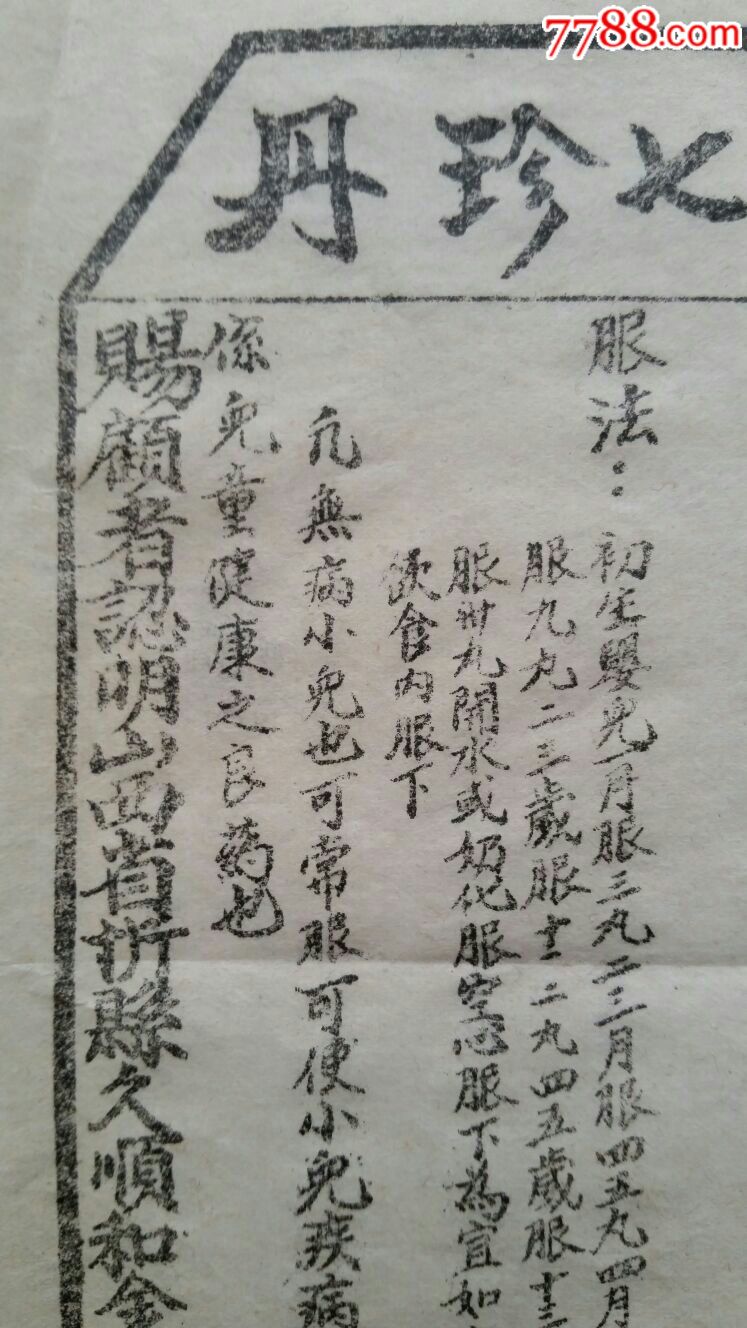 7788.com
七珍丹
服法：初生嬰兒一月服三丸二三月服四五丸四月
服九丸二三歲服十一二丸四五歲服十三
服卅丸開水或奶化服空心服下為宜如
飲食內服下
凡無病小兒也可常服可使小兒疾病
係兒童健康之良药也
賜顧者認明山西省折縣久順和金